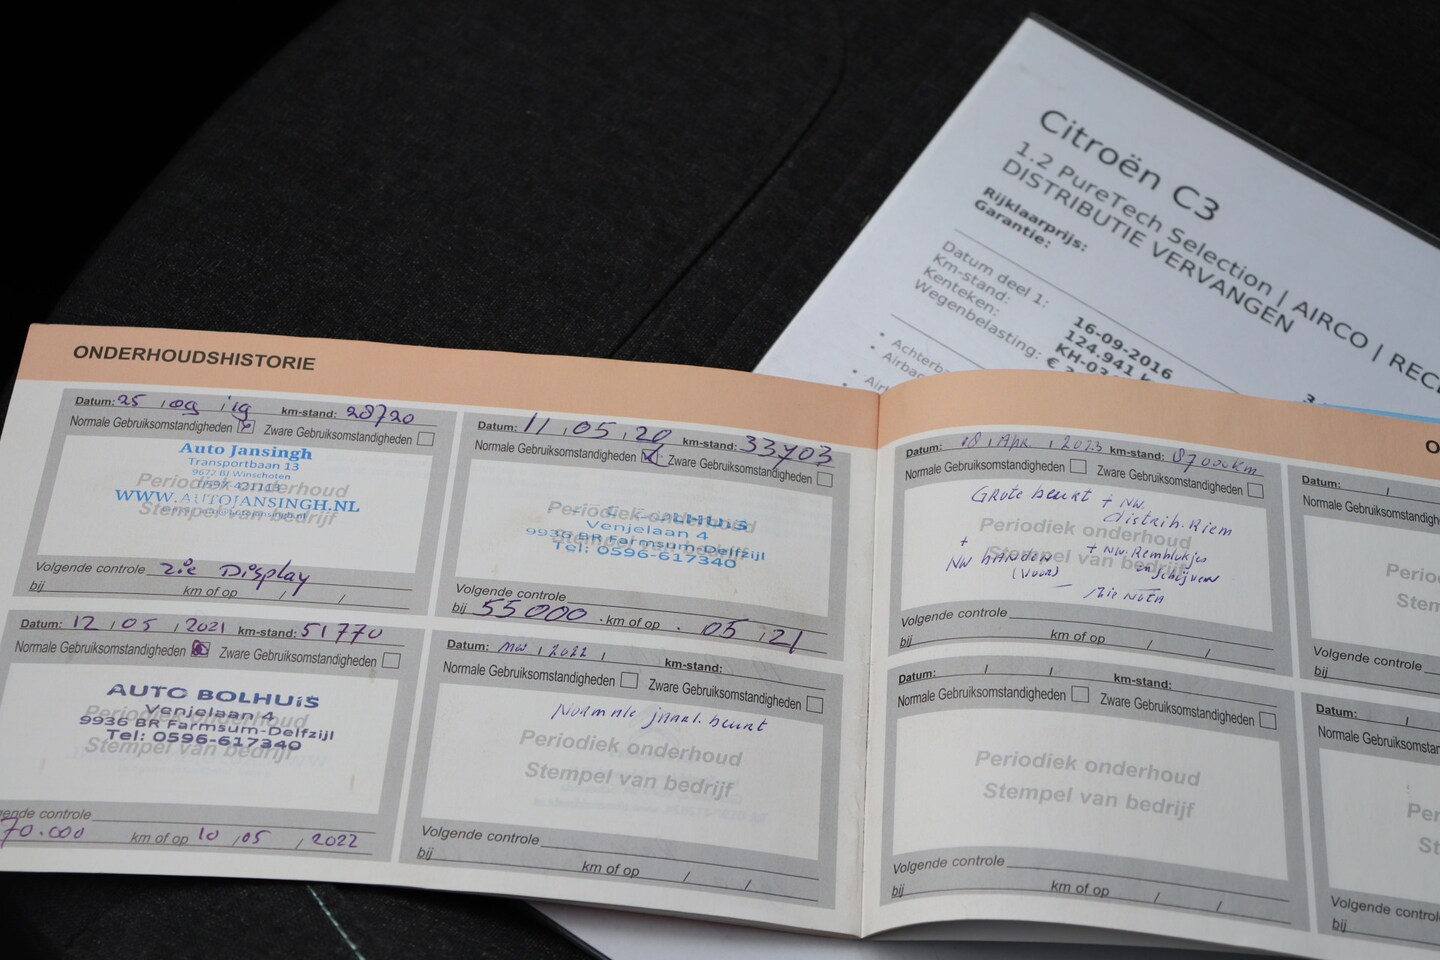 Citroën C3
1.2 PureTech Selection | AIRCO | REC
DISTRIBUTIE VERVANGEN
Rijklaarprijs:
Garantie:
Datum deel 1: 16-09-2016
Km-stand: 124.941
Kenteken: KH-03
Wegenbelasting: €
• Achterb
• Airba
ONDERHOUDSHISTORIE
Datum: 25 / 09 / 19 km-stand: 28720
Normale Gebruiksomstandigheden Zware Gebruiksomstandigheden
Auto Jansingh
Transportbaan 13
9672 BJ Winschoten
0597-421113
WWW.AUTOJANSINGH.NL
Periodiek onderhoud
Stempel van bedrijf
Volgende controle zie Display
bij km of op / /
Datum: 11 / 05 / 20 km-stand: 33703
Normale Gebruiksomstandigheden Zware Gebruiksomstandigheden
Periodiek onderhoud
Stempel van bedrijf
Venjelaan 4
9936 BR Farmsum-Delfzijl
Tel: 0596-617340
Volgende controle
bij 55000 km of op 05 / 21
Datum: 12 / 05 / 2021 km-stand: 51770
Normale Gebruiksomstandigheden Zware Gebruiksomstandigheden
AUTO BOLHUiS
Venjelaan 4
9936 BR Farmsum-Delfzijl
Tel: 0596-617340
Periodiek onderhoud
Stempel van bedrijf
gende controle
70.000 km of op 10 / 05 / 2022
Datum: / 2022 / km-stand:
Normale Gebruiksomstandigheden Zware Gebruiksomstandigheden
Normale jaarl. beurt
Periodiek onderhoud
Stempel van bedrijf
Volgende controle
bij km of op / /
Datum: 08 / Apr / 2023 km-stand: 87000km
Normale Gebruiksomstandigheden Zware Gebruiksomstandigheden
Grote beurt + NW.
distrib. Riem
+ NW BANDEN (Voor)
+ NW. Remblokjes
en schijven
Periodiek onderhoud
Stempel van bedrijf
Volgende controle
bij km of op / /
Datum: / / km-stand:
Normale Gebruiksomstandigheden Zware Gebruiksomstandigheden
Periodiek onderhoud
Stempel van bedrijf
Volgende controle
bij km of op / /
O
Datum: /
Normale Gebruiksomstandigh
Perio
Stem
Volgende controle
bij
Datum: /
Normale Gebruiksomstan
Per
St
Volgende control
bij